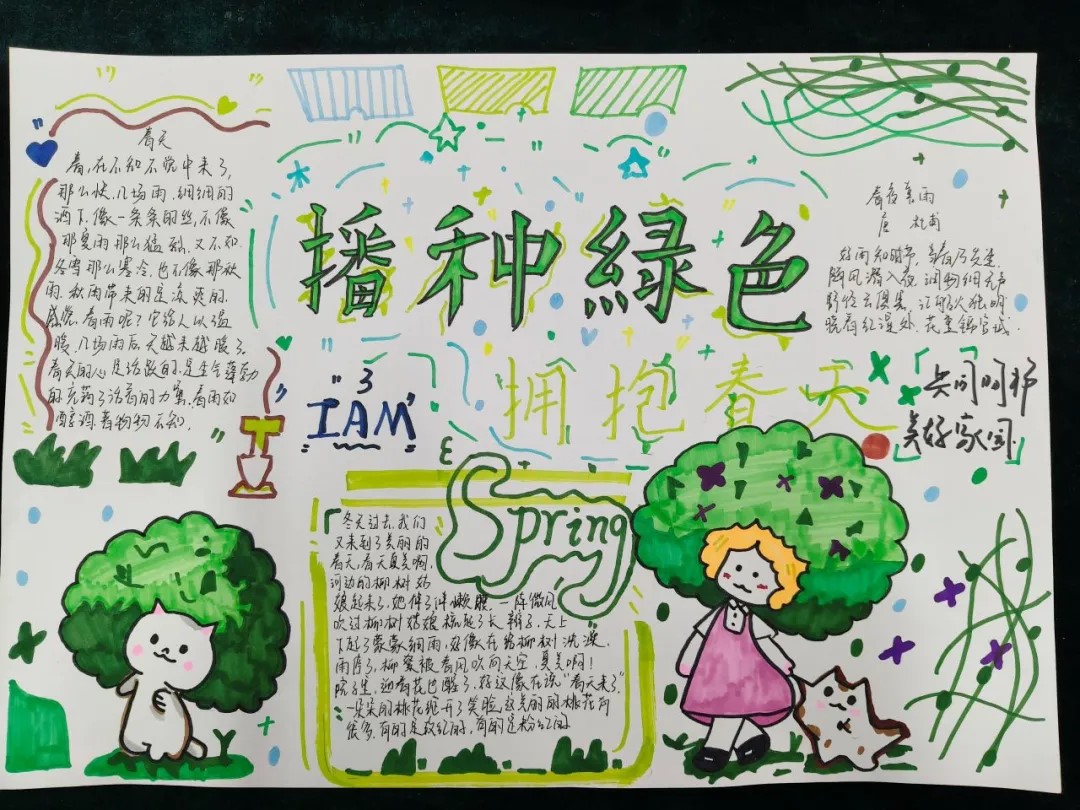 播种綠色
拥抱春天
春天
春,在不知不觉中来了,
那么快,几场雨,细细的
洒下,像一条条的丝,不像
那夏雨那么猛烈,又不如
冬雪那么寒冷,也不像那秋
雨,秋雨带来的是凉爽的
感觉,春雨呢?它给人以温
暖,几场雨后,天越来越暖了,
春天的心是活跃的,是生气蓬勃
的充满了活着的力量,春雨如
醇酒,着物物不知,
春夜喜雨
唐 杜甫
好雨知时节,当春乃发生.
随风潜入夜,润物细无声
野径云俱黑,江船火独明
晓看红湿处,花重锦官城.
共同呵护
美好家园.
3
IAM
Spring
冬天过去,我们
又来到了美丽的
春天,春天真美啊,
河边的柳树姑
娘起来了,她伸了伸懒腰,一阵微风
吹过柳树姑娘梳起了长辫子,天上
下起了蒙蒙细雨,好像在给柳树洗澡,
雨停了,柳絮被春风吹向天空,真美啊!
院子里,迎春花也醒了,好像在说"春天来了"
一朵朵的桃花绽开了笑脸,这美丽的桃花有
很多,有的是玫红的,有的是粉红的